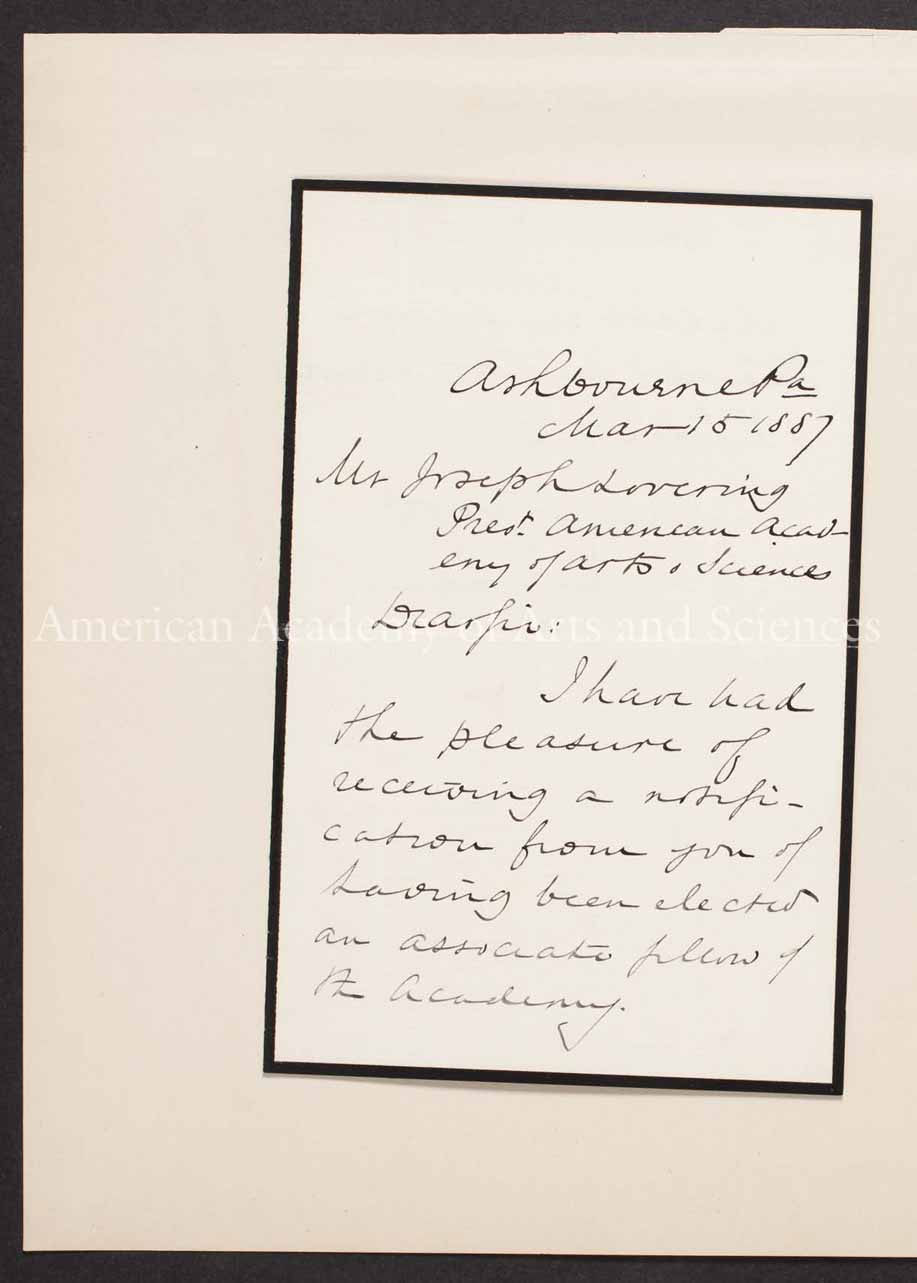 Ashbourne Pa
Mar 15 1887
Mr Joseph Lovering
Prest. American Acad-
emy of Arts & Sciences
Dear Sir:
I have had
the pleasure of
receiving a notifi-
cation from you of
having been elected
an associate fellow of
the Academy.
American Academy of Arts and Sciences